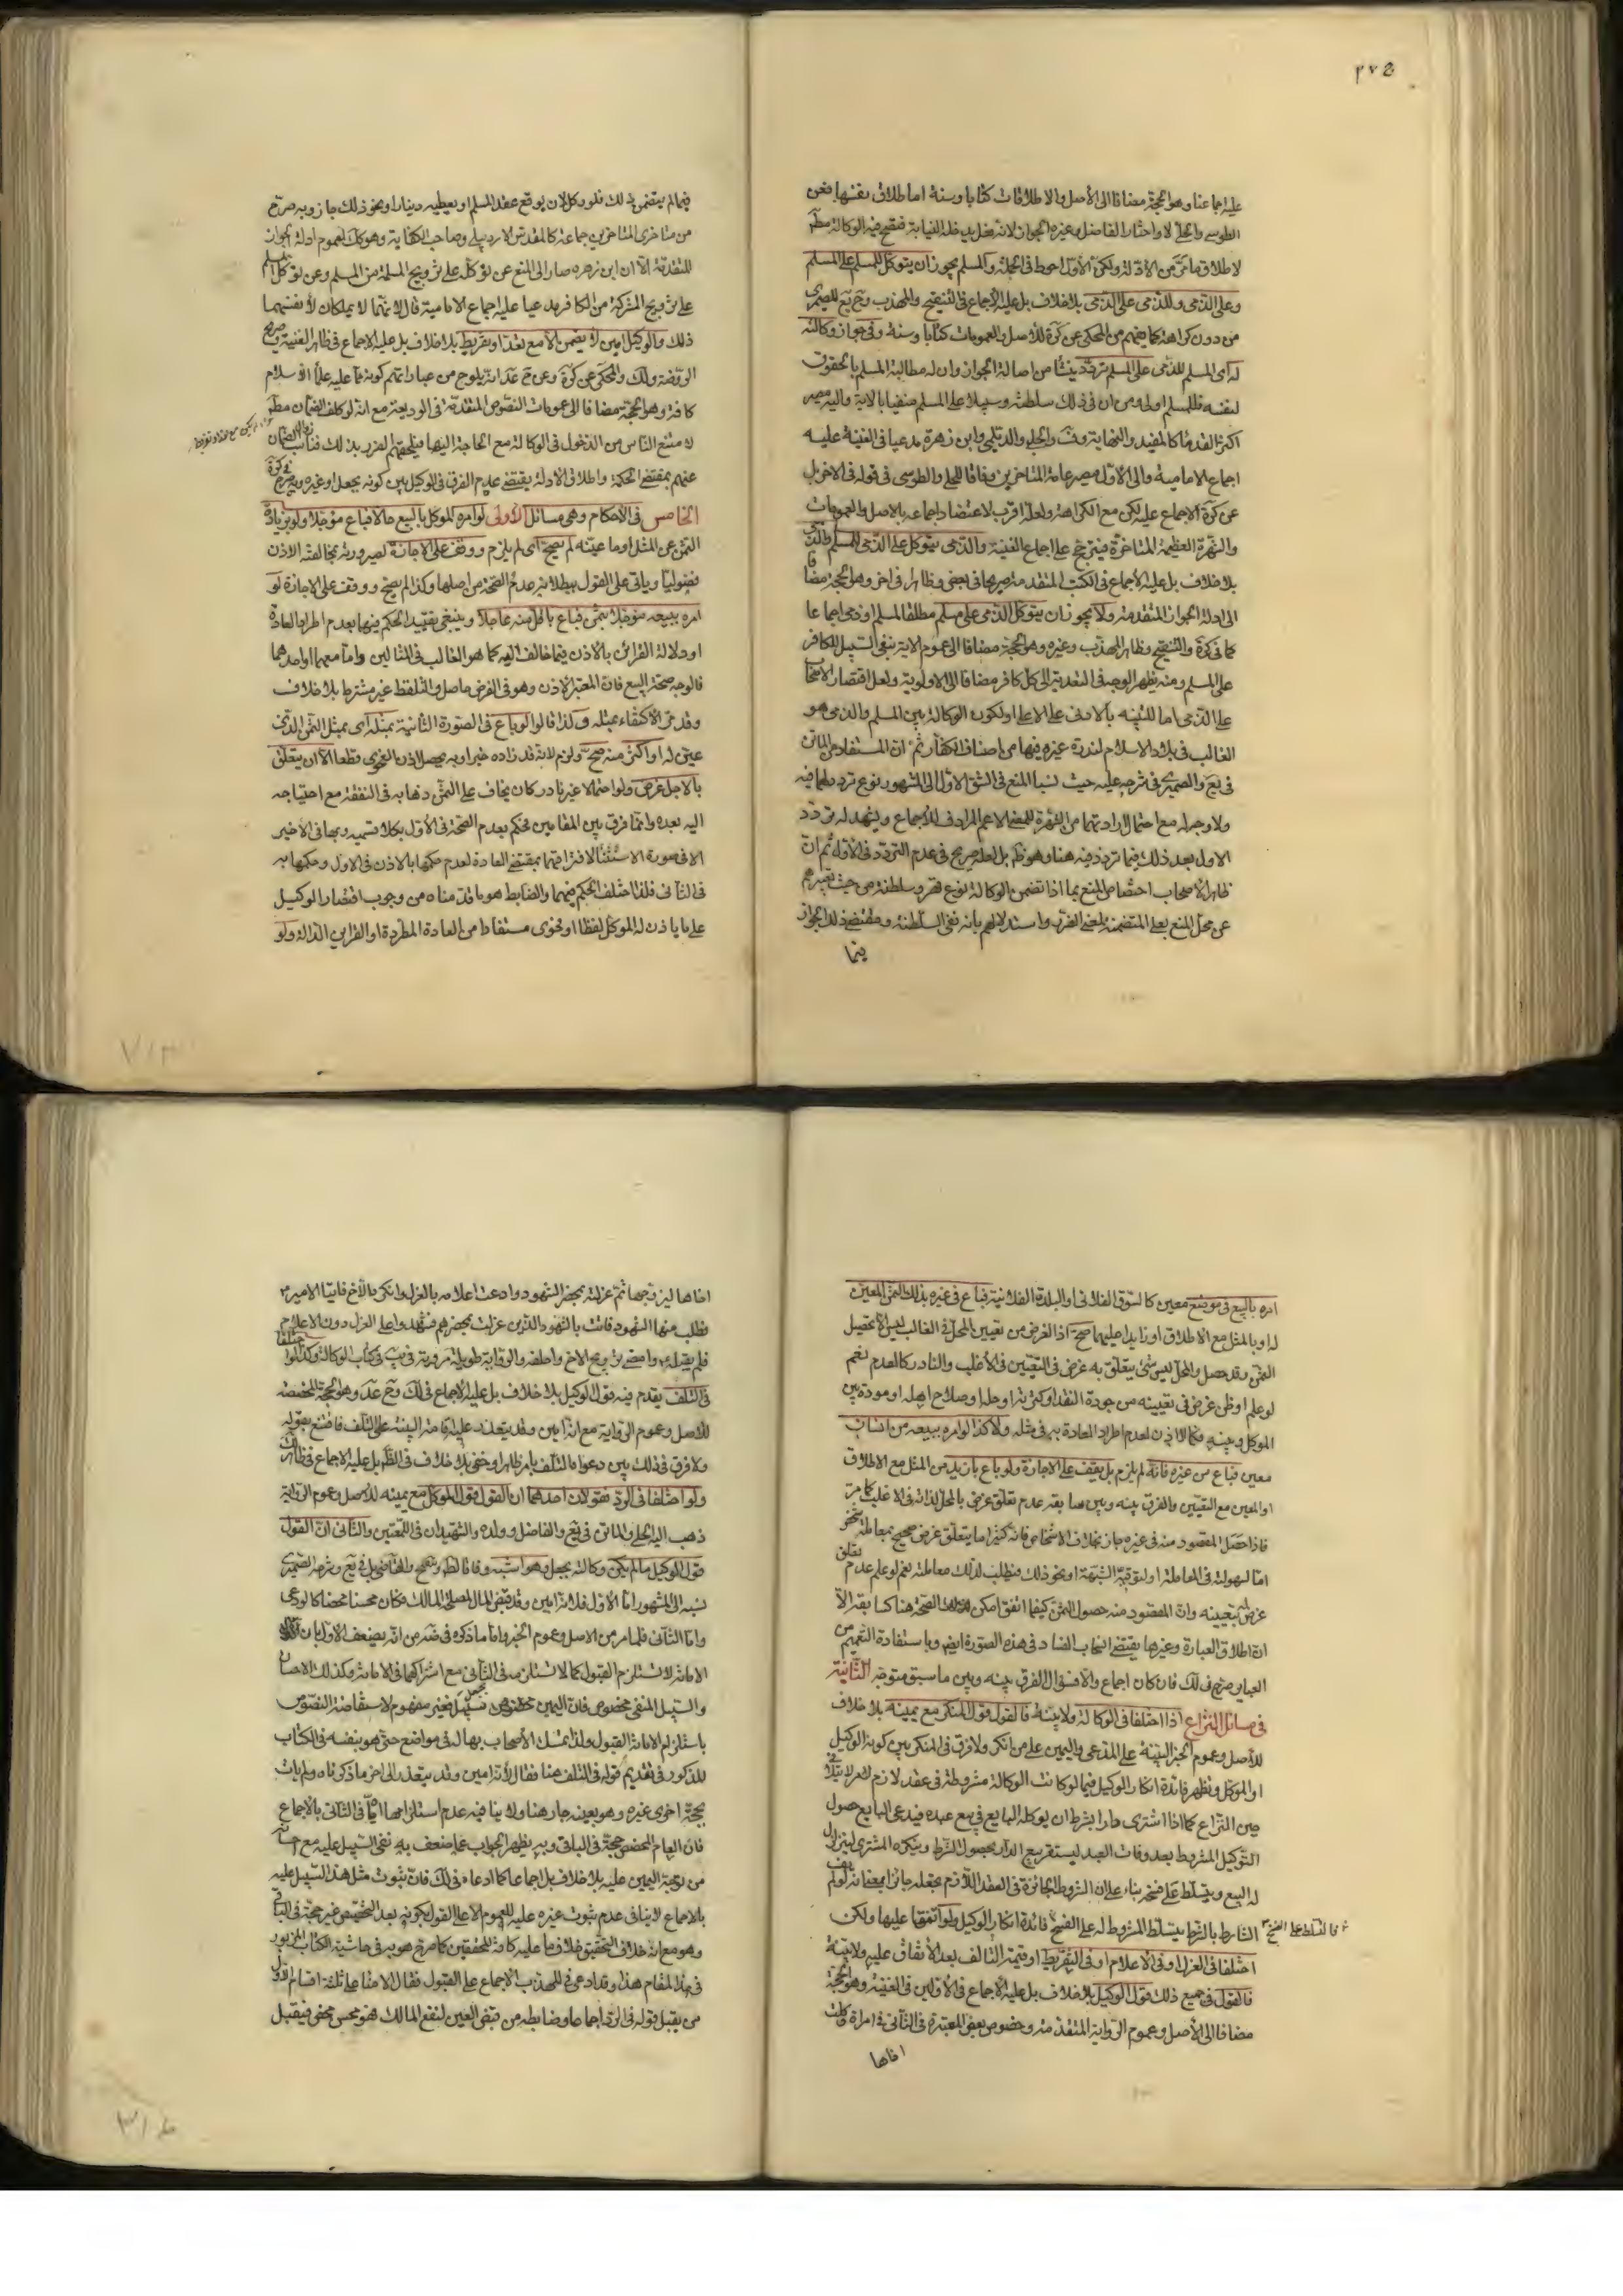 ٣٧٥
عليه اجماعنا وهو الحجة مضافا الى الأصل والاطلاقات كتابا وسنة اما طلاق نفسها فعن
الطوسي والحلي لا واختار الفاضل وغيره الجواز لانه فعل يدخله النيابة فتصح فيه الوكالة
لاطلاق ما مر من الأدلة ولكن الأول احوط في الجملة والمسلم يجوز ان يتوكل للمسلم على المسلم
وعلى الذمي وللذمي على الذمي بلا خلاف بل عليه الاجماع في التنقيح والمهذب
من دون كراهة كما يفهم من المحكي عن كره للأصل والعمومات كتابا وسنة وفي جواز وكالته
له اي المسلم للذمي على المسلم تردد ينشأ من اصالة الجواز وان له مطالبة المسلم بالحقوق
لنفسه فللمسلم اولى ومن ان في ذلك سلطنة وسبيلا على المسلم منفيا بالاية واليه مصير
اكثر القدماء كالمفيد والنهاية والحلبي والديلمي وابن زهرة مدعيا في الغنية عليه
اجماع الامامية والى الأول مصير عامة المتأخرين وفاقا للحلي والطوسي في قوله الاخر بل
عن كره الاجماع عليه لكن مع الكراهة ولعله اقرب لاعتضاد اجماعه بالاصل والعمومات
والشهرة العظيمة المتاخرة فيترجح على اجماع الغنية والذمي يتوكل على الذمي للمسلم والذمي
بلا خلاف بل عليه الاجماع في الكتب المتقدمة صريحا في بعض وظاهرا في اخر وهو الحجة مضافا
الى ادلة الجواز المتقدمة ولا يجوز ان يتوكل الذمي على مسلم مطلقا لمسلم او ذمي اجماعا
كما في كره والتنقيح وظاهر المهذب وغيره وهو الحجة مضافا الى عموم الاية بنفي السبيل للكافر
على المسلم ومنه يظهر الوجه في التعدية الى كل كافر مضافا الى الاولوية ولعل اقتصار الاصحاب
على الذمي اما للتنبيه بالأدنى على الاعلى او لكون الوكالة بين المسلم والذمي هو
الغالب في بلاد الاسلام لندرة غيره فيها من اصناف الكفار ثم ان المستفاد من الماتن
في يع والصيمري في شرحه عليه حيث نسبا المنع في الشق الاول الى المشهور نوع تردد لهما فيه
ولا وجه له مع احتمال ارادتهما من الشهرة المعنى الاعم المرادف للاجماع ويشهد له تردد
الاول بعد ذلك فيما تردد فيه هنا وهو بل لعله صريح في عدم التردد في الأول ثم ان
ظاهر الاصحاب اختصاص المنع بما اذا تضمن الوكالة نوع قهر وسلطنة من حيث تعبيرهم
عن محل المنع بعلى المتضمنة لمعنى الضرر واستدلالهم بانه نفي السلطنة ومقتضى ذلك الجواز
فيما
فيما لم يتضمن ذلك فلو وكل لان يوقع عقد المسلم او يعطيه دينارا ونحو ذلك جاز وبه صرح
من متاخري المتاخرين جماعة كالمقدس الاردبيلي وصاحب الكفاية وهو كك لعموم ادلة الجواز
المتقدمة الا ان ابن زهره صار الى المنع عن توكله على تزويج المسلمة من المسلم وعن توكل المسلم
على تزويج المشركة من الكافر مدعيا عليه اجماع الامامية قال لانهما لا يملكان لأنفسهما
ذلك والوكيل امين لا يضمن الا مع تعد او تفريط بلا خلاف بل عليه الاجماع في ظاهر الغنية وصريح
الروضة ولك والمحكي عن كره وعن عدانه يلوح من عبارائهم كونه مما عليه علماء الاسلام
كافة وهو الحجة مضافا الى عمومات النصوص المتقدمة في الوديعة مع انه لو كلف الضمان
لامتنع الناس من الدخول في الوكالة مع الحاجة اليها فيلحقهم الضرر بذلك فناسب زوال الضمان
عنهم بمقتضى الحكمة واطلاق الادلة يقتضي عدم الفرق في الوكيل بين كونه بجعل او غيره وبه صرح في كره
الخامس في الأحكام وهي مسائل الأولى لو امره الموكل بالبيع حالا فباع مؤجلا ولو بزيادة
الثمن عن المثل او ما عينه لم يصح اي لم يلزم ووقف على الاجازة لصيرورته بمخالفة الاذن
فضوليا وياتي على القول ببطلانه عدم الصحة من اصلها وكذا لم يصح ووقف على الاجازة لو
امره ببيعه مؤجلا بثمن فباع باقل منه عاجلا وينبغي تقييد الحكم فيها بعدم اطراد العادة
او دلالة القرائن بالاذن فيما خالف اليه كما هو الغالب في الثاني واما معهما او احدهما
فالوجه صحة البيع فان المعتبر الاذن وهو في الفرض حاصل والتلفظ غير مشترط بلا خلاف
وقد مر الاكتفاء بمثله وكذا قالوا لو باع في الصورة الثانية بمثله اي بمثل الثمن الذي
عين له او اكثر منه صح ولزم لانه قد زاده خيرا وبه يحصل الاذن بالفحوى قطعا الا ان يتعلق
بالاجل غرض ولو احتمالا غير نادر كان يخاف على الثمن ذهابه في النفقة مع احتياجه
اليه بعده وانما فرق بين المقامين فحكم بعدم الصحة في الاول بكلا قسميه وبها في الاخير
الا في صورة الاستثناء لافتراقهما بمقتضى العادة لعدم حكمها بالاذن في الاول وحكمها به
في الثاني فلذا اختلف الحكم فيهما والضابط هو ما قدمناه من وجوب اقتصار الوكيل
على ما ياذن له الموكل لفظا او فحوى مستفادا من العادة المطردة او القراين الدالة ولو
امره بالبيع في موضع معين كالسوق الفلاني او البلدة الفلانية فباع في غيره بذلك الثمن المعين
له او بالمثل مع الاطلاق او زايدا عليهما صح اذ الغرض من تعيين المحل في الغالب ليس الا تحصيل
الثمن وقد حصل والمحل ليس شيء يتعلق به غرض في التعيين في الأغلب والنادر كالعدم نعم
لو علم او ظن غرض في تعيينه من جودة النقد او كثرته او حله او صلاح اهله او مودة بين
الموكل وبينهم فكما لا اذن لعدم اطراد العادة به في مثله ولا كذا لو امره ببيعه من انسان
معين فباع من غيره فانه لم يلزم بل يقف على الاجازة ولو باع بازيد من المثل مع الاطلاق
او المعين مع التعيين والفرق بينه وبين سابقه عدم تعلق غرض بالمحل لذاته في الاغلب كما مر
فاذا حصل المقصود منه في غيره جاز بخلاف الاشخاص فانه كثيرا ما يتعلق غرض صحيح بمعاملة شخص
اما لسهولته في المعاملة او لتوقيه الشبهة او نحو ذلك فتطلب لذلك معاملته نعم لو علم عدم تعلق
غرض له بتعيينه وان المقصود منه حصول الثمن كيفما اتفق امكن الصحة هنا كسابقه الا
ان اطلاق العبارة وغيرها يقتضي انسحاب الفساد في هذه الصورة ايضا وباستفادة التعميم من
العبارة صرح في لك فان كان اجماع والا فسؤال الفرق بينه وبين ما سبق متوجه الثانية
في مسائل النزاع اذا اختلفا في الوكالة ولا بينة فالقول قول المنكر مع يمينه بلا خلاف
للأصل وعموم الخبر البينة على المدعي واليمين على من انكر ولا فرق في المنكر بين كونه الوكيل
او الموكل وتظهر فائدة انكار الوكيل فيما لو كانت الوكالة مشروطة في عقد لازم لامر لا يتلافى
حين النزاع كما اذا اشترى دارا بشرط ان يوكله البايع في بيع عبده فيدعي البايع حصول
التوكيل المشروط بعد وفات العبد ليستقر بيع الدار بحصول الشرط وينكره المشتري ليتزلزل
له البيع ويتسلط على فسخه بناء على ان الشروط الجائزة في العقد اللازم تجعله جائزا بمعنى انه لو لم يف
الشارط بالشرط يتسلط المشروط له على الفسخ فالتسلط على الفسخ فائدة انكار الوكيل ولو اتفقا عليها ولكن
اختلفا في العزل او في الاعلام او في التفريط او قيمة التالف بعد الاتفاق عليه ولا بينة
فالقول في جميع ذلك قول الوكيل بلا خلاف بل عليه الاجماع في الأولين في الغنية وهو الحجة
مضافا الى الأصل وعموم الرواية المتقدمة وخصوص بعض المعتبرة في الثاني في امراة وكلت
اخاها
اخاها ليزوجها ثم عزلته بمحضر الشهود وادعت اعلامه بالعزل وانكر بالأخ فاتيا الامير
فطلب منها الشهود فاتت بالشهود الذين عزلت بمحضرهم فشهدوا على العزل دون الاعلام
فلم يقبله وامضى تزويج الاخ واحلفه والرواية طويلة مروية في يب في كتاب الوكالة وكذا لو اختلفا
في التلف يقدم فيه قول الوكيل بلا خلاف بل عليه الاجماع في لك وعن عد وهو الحجة المخصصة
للاصل وعموم الرواية مع انه امين وقد يتعذر عليه اقامة البينة على التلف فاقتنع بقوله
ولا فرق في ذلك بين دعواه التلف بامر ظاهر او خفي بلا خلاف في الظاهر بل عليه الاجماع في ظاهر لك
ولو اختلفا في الرد فقولان احدهما ان القول قول الموكل مع يمينه للأصل وعموم الرواية
ذهب اليه الحلي والماتن في يع والفاضل وولده والشهيدان في اللمعتين والثاني ان القول
قول الوكيل ما لم يكن وكالته بجعل وهو اشبه وفاقا للطوسي والقاضي بل في يع وشرحه للصيمري
نسبه الى المشهور اما الأول فلانه امين وقد قبض المال لمصلحة المالك فكان محسنا محضا كالودعي
واما الثاني فلما مر من الاصل وعموم الخبر واما ما ذكره في ضه من انه يضعف الاول بان
الامانة لا تستلزم القبول كما لا تستلزمه في الثاني مع اشتراكهما في الامانة وكذلك الاحسان
والسبيل المنفي مخصوص فان اليمين سبيل فغير مفهوم لاستفاضة النصوص
باستلزام الامانة القبول ولذا تمسك الأصحاب بها له في مواضع حتى هو بنفسه في الكتاب
المذكور في تقديم قوله في التلف هنا فقال لأنه امين وقد يتعذر الى اخر ما ذكرناه ولم يات
بحجة اخرى غيره وهو بعينه جار هنا ولا ينافيه عدم استلزامها اياه في الثاني بالاجماع
فان العام المخصص حجة في الباقي وبه يظهر الجواب عما ضعف به نفي السبيل عليه مع احسانه
من توجه اليمين عليه بلا خلاف بل اجماعا كما ادعاه في لك فان ثبوت مثل هذا السبيل عليه
بالاجماع لا ينافي عدم ثبوت غيره عليه للعموم الا على القول بكونه بعد التخصيص غير حجة في الباقي
وهو مع انه خلاف التحقيق خلاف ما عليه كافة المحققين كما صرح هو به في حاشية الكتاب المزبور
في هذا المقام هذا وقد ادعى في المهذب الاجماع على القبول فقال الامناء على ثلثة اقسام الاول
من يقبل قوله في الرد اجماعا وضابطه من قبض العين لنفع المالك فهو محسن محض فيقبل